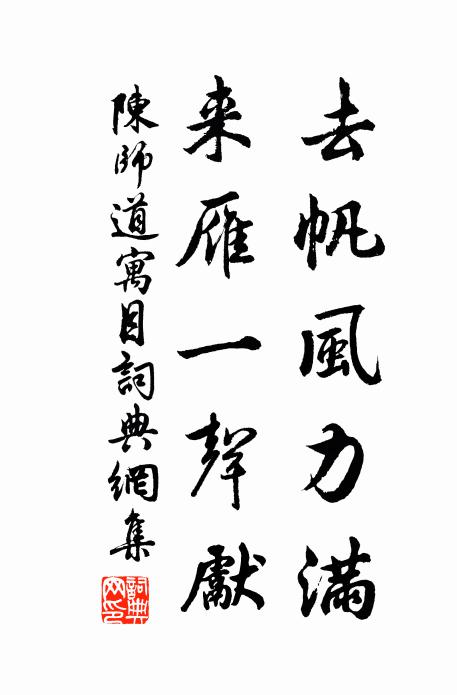 去帆風力滿
来雁一聲獻
陳師道寓目詞典網集
詞典網印